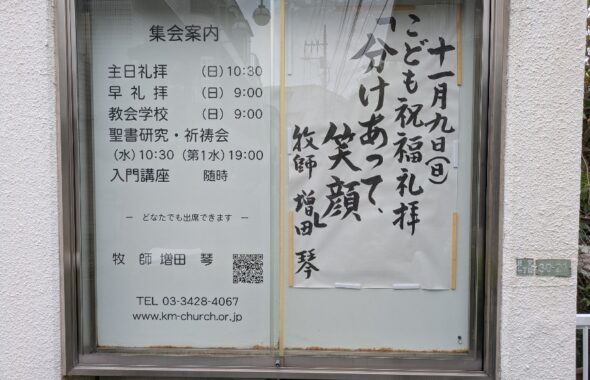 集会案内
主日礼拝 (日) 10:30
早礼拝 (日) 9:00
教会学校 (日) 9:00
聖書研究・祈祷会
(水) 10:30 (第1水) 19:00
入門講座 随時
― どなたでも出席できます ―
牧師 増田 琴
TEL 03-3428-4067
www.km-church.or.jp
十一月九日(日)
こども祝福礼拝
「分けあって、
笑顔」
牧師 増田 琴